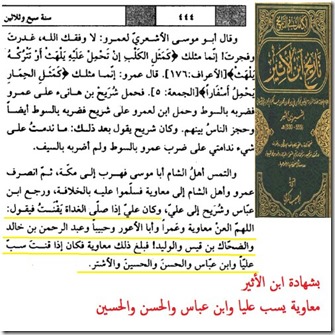 ٤٤٤
سنة سبع وثلاثين
وقال أبو موسى الأشعري لعمرو: لا وفقك الله، غدرت
وفجرت! إنما مثلك ﴿كمثل الكلب إن تحمل عليه يلهث أو تتركه
يلهث﴾[الأعراف:١٧٦]. قال عمرو: إنما مثلك ﴿كمثل الحمار
يحمل أسفارا﴾[الجمعة: ٥]. فحمل شريح بن هانىء على عمرو
فضربه بالسوط وحمل ابن لعمرو على شريح فضربه بالسوط أيضاً
وحجز الناس بينهم. وكان شريح يقول بعد ذلك: ما ندمت على
شيء ندامتي على ضرب عمرو بالسوط ولم أضربه بالسيف.
والتمس أهل الشام أبا موسى فهرب إلى مكة، ثم انصرف
عمرو وأهل الشام إلى معاوية فسلموا عليه بالخلافة، ورجع ابن
عباس وشريح إلى علي، وكان علي إذا صلى الغداة يقنت فيقول:
اللهم العن معاوية وعمراً وأبا الأعور وحبيباً وعبد الرحمن بن خالد
والضحاك بن قيس والوليد! فبلغ ذلك معاوية فكان إذا قنت سب
علياً وابن عباس والحسن والحسين والأشتر.
بشهادة ابن الأثير
معاوية يسب عليا وابن عباس والحسن والحسين